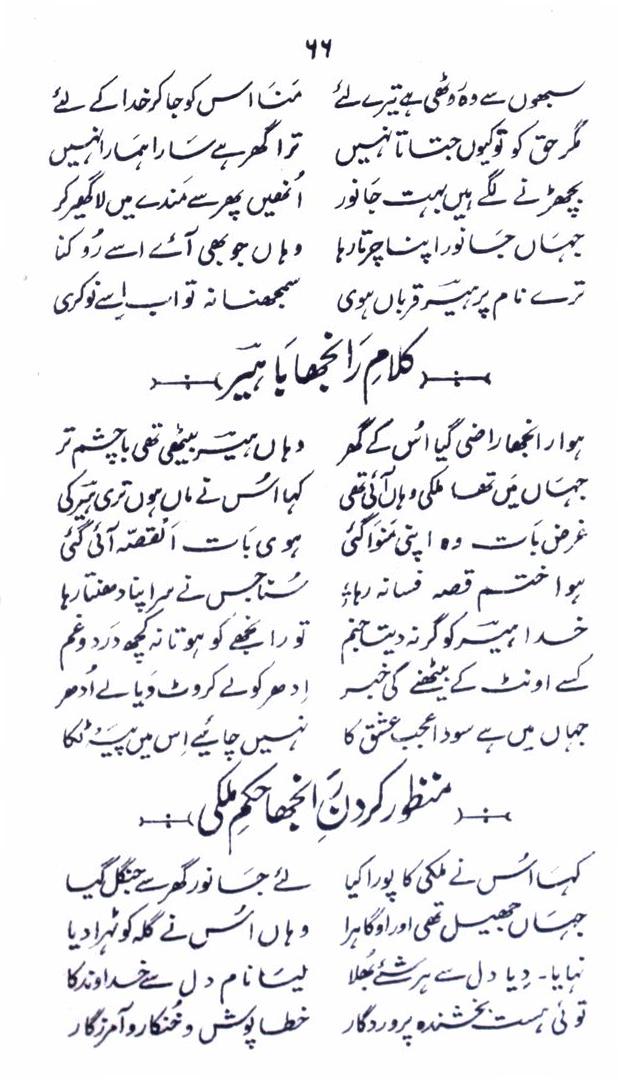 ۶۶
سبھوں سے وہ روٹھی ہے تیرے لئے منا اس کو جا کر خدا کے لئے
مگر حق کو تو کیوں جتاتا نہیں ترا گھر ہے سارا ہمارا نہیں
بچھڑنے لگے ہیں بہت جانور اُنھیں پھر سے مندے میں لا گھیر کر
جہاں جانور اپنا چرتا رہا وہاں جو بھی آئے اسے روکنا
ترے نام پر ہیر قرباں ہوی سمجھنا نہ تو اب اِسے نوکری
کلامِ رانجھا با ہیر
ہوا رانجھا راضی گیا اُس کے گھر وہاں ہیر بیٹھی تھی با چشم تر
جہاں میں تھا ملکی وہاں آئی تھی کہا اُس نے ماں ہوں تری ہیر کی
غرض بات وہ اپنی منوا گئی ہوی بات القصّہ آئی گئی
ہوا ختم قصہ فسانہ رہا سُنا جس نے سر اپنا دھنتا رہا
خدا ہیر کو گر نہ دیتا جنم تو رانجھے کو ہوتا نہ کچھ درد و غم
کسے اونٹ کے بیٹھنے کی خبر اِدھر کو لے کروٹ و یا لے اُدھر
جہاں میں ہے سودا عجب عشق کا نہیں چاہیے اِس میں پیسہ ٹکا
منظور کردنِ رانجھا حکمِ ملکی
کہا اُس نے ملکی کا پورا کیا لئے جانور گھر سے جنگل گیا
جہاں جھیل تھی اور اوگاہرا وہاں اُس نے گلہ کو ٹہرا دیا
نہایا۔ دِیا دل سے ہر شئے بُھلا لیا نام دل سے خداوند کا
توئی ہست بخشندہ پروردگار خطا پوش و خُنکار و آمرزگار